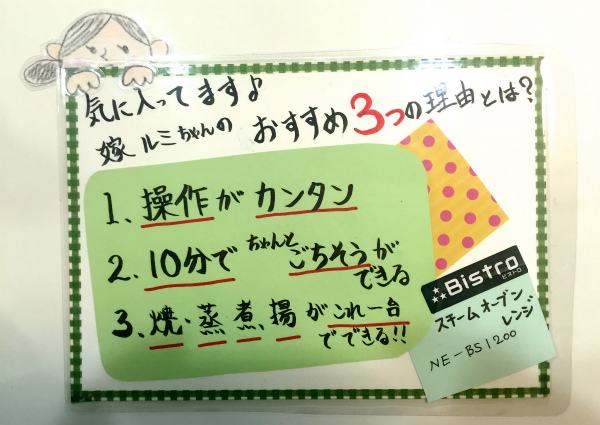 気に入ってます♪
嫁 ルミちゃんの おすすめ3つの理由とは?
1. 操作がカンタン
2. 10分で ちゃんと ごちそうが
できる
3. 焼・蒸、煮、揚がこれ一台
でできる!!
Bistro
ビストロ
スチームオーブン
レンジ
NE-BS1200